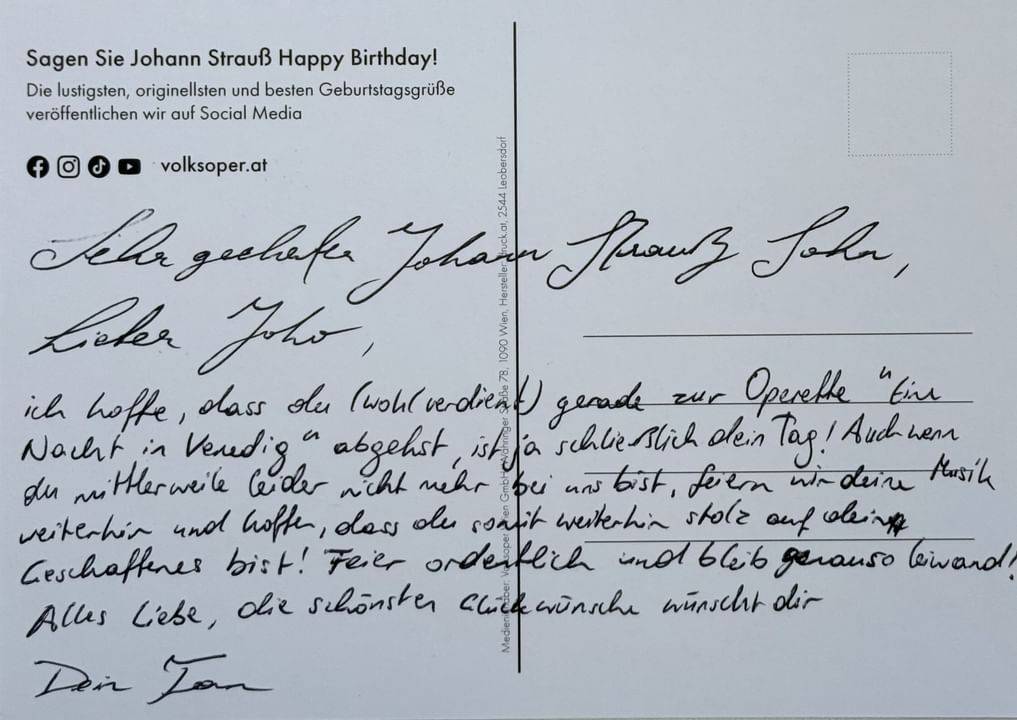 Sagen Sie Johann Strauß Happy Birthday!
Die lustigsten, originellsten und besten Geburtstagsgrüße
veröffentlichen wir auf Social Media
volksoper.at
Sehr geehrter Johann Strauß Sohn,
Lieber Joho,
ich hoffe, dass du (wohlverdient) gerade zur Operette "Eine
Nacht in Venedig" abgehst, ist ja schließlich dein Tag! Auch wenn
du mittlerweile leider nicht mehr bei uns bist, feiern wir deine Musik
weiterhin und hoffen, dass du somit weiterhin stolz auf dein
Geschaffenes bist! Feier ordentlich und bleib genauso leiwand!
Alles Liebe, die schönsten Glückwünsche wünscht dir
Dein Jan
Medieninhaber: Volksoper Wien GmbH, Währinger Straße 78, 1090 Wien, Hersteller: druck.at, 2544 Leobersdorf